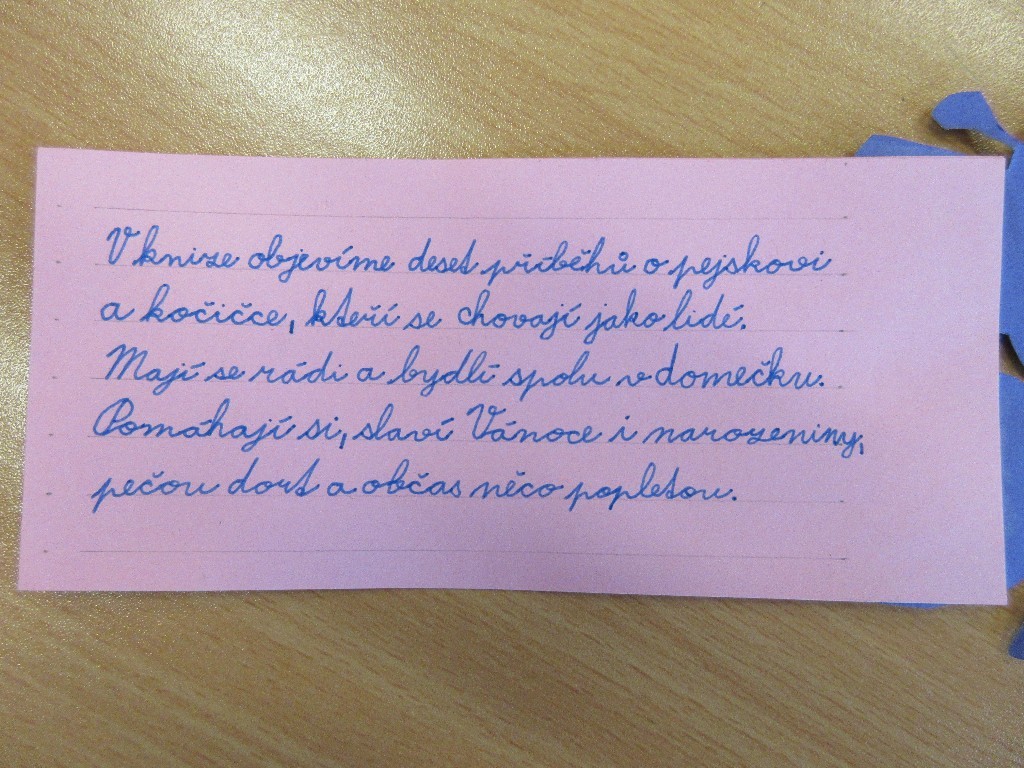 V knize objevíme deset příběhů o pejskovi
a kočičce, kteří se chovají jako lidé.
Mají se rádi a bydlí spolu v domečku.
Pomáhají si, slaví Vánoce i narozeniny,
pečou dort a občas něco popletou.